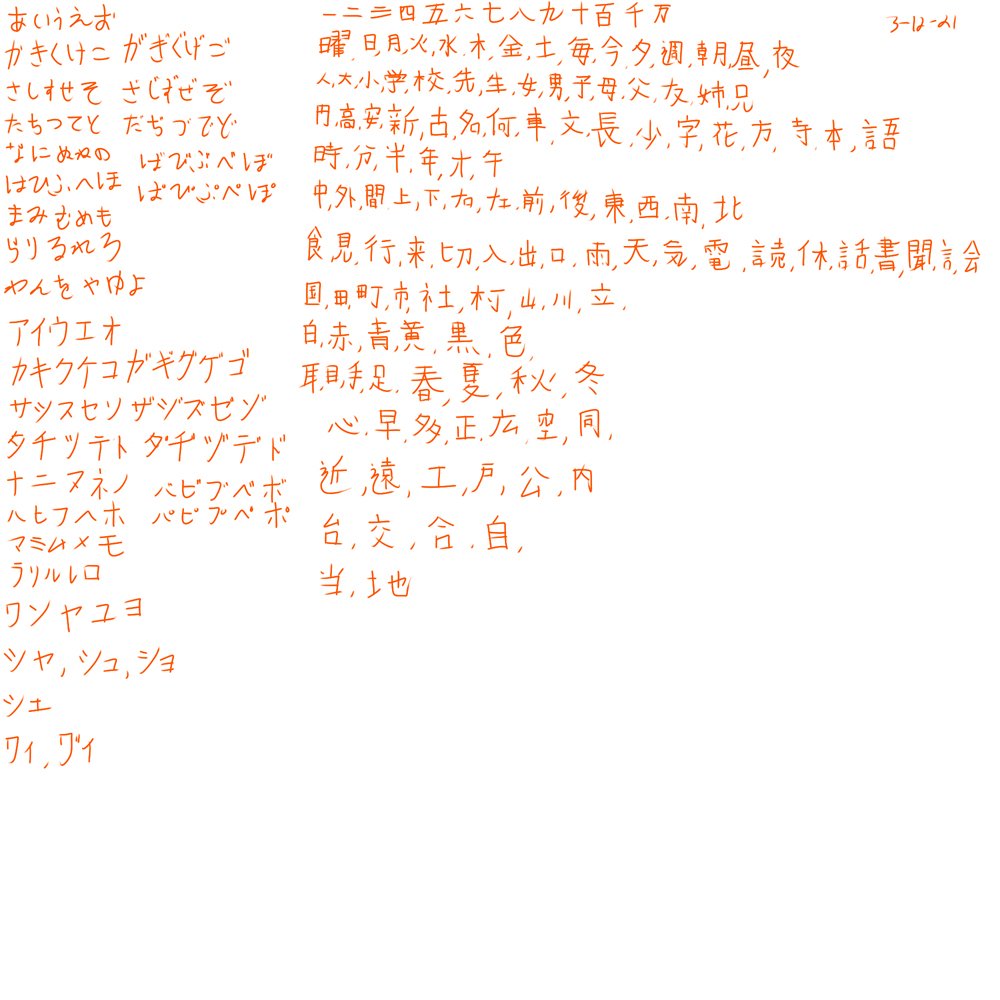 あいうえお
かきくけこ がぎぐげご
さしすせそ ざじずぜぞ
たちつてと だぢづでど
なにぬねの ばびぶべぼ
はひふへほ ぱぴぷぺぽ
まみむめも
らりるれろ
わんをやゆよ
アイウエオ
カキクケコ ガギグゲゴ
サシスセソ ザジズゼゾ
タチツテト ダヂヅデド
ナニヌネノ バビブベボ
ハヒフヘホ パピプペポ
マミムメモ
ラリルレロ
ワンヤユヨ
シャ, シュ, ショ
シエ
ワィ, ヷィ
一二三四五六七八九十百千万
3-12-21
曜,日,月,火,水,木,金,土,毎,今,夕,週,朝,昼,夜
人,大,小,学,校,先,生,女,男,子,母,父,友,姉,兄
円,高,安,新,古,名,何,車,文,長,少,字,花,方,寺,本,語
時,分,半,年,才,午
中,外,間,上,下,右,左,前,後,東,西,南,北
食,見,行,来,切,入,出,口,雨,天,気,電,読,休,話,書,聞,言,会
国,田,町,市,社,村,山,川,立,
白,赤,青,黄,黒,色,
耳,目,手,足,春,夏,秋,冬
心,早,多,正,広,空,同,
近,遠,工,戸,公,内
台,交,合,自,
当,地